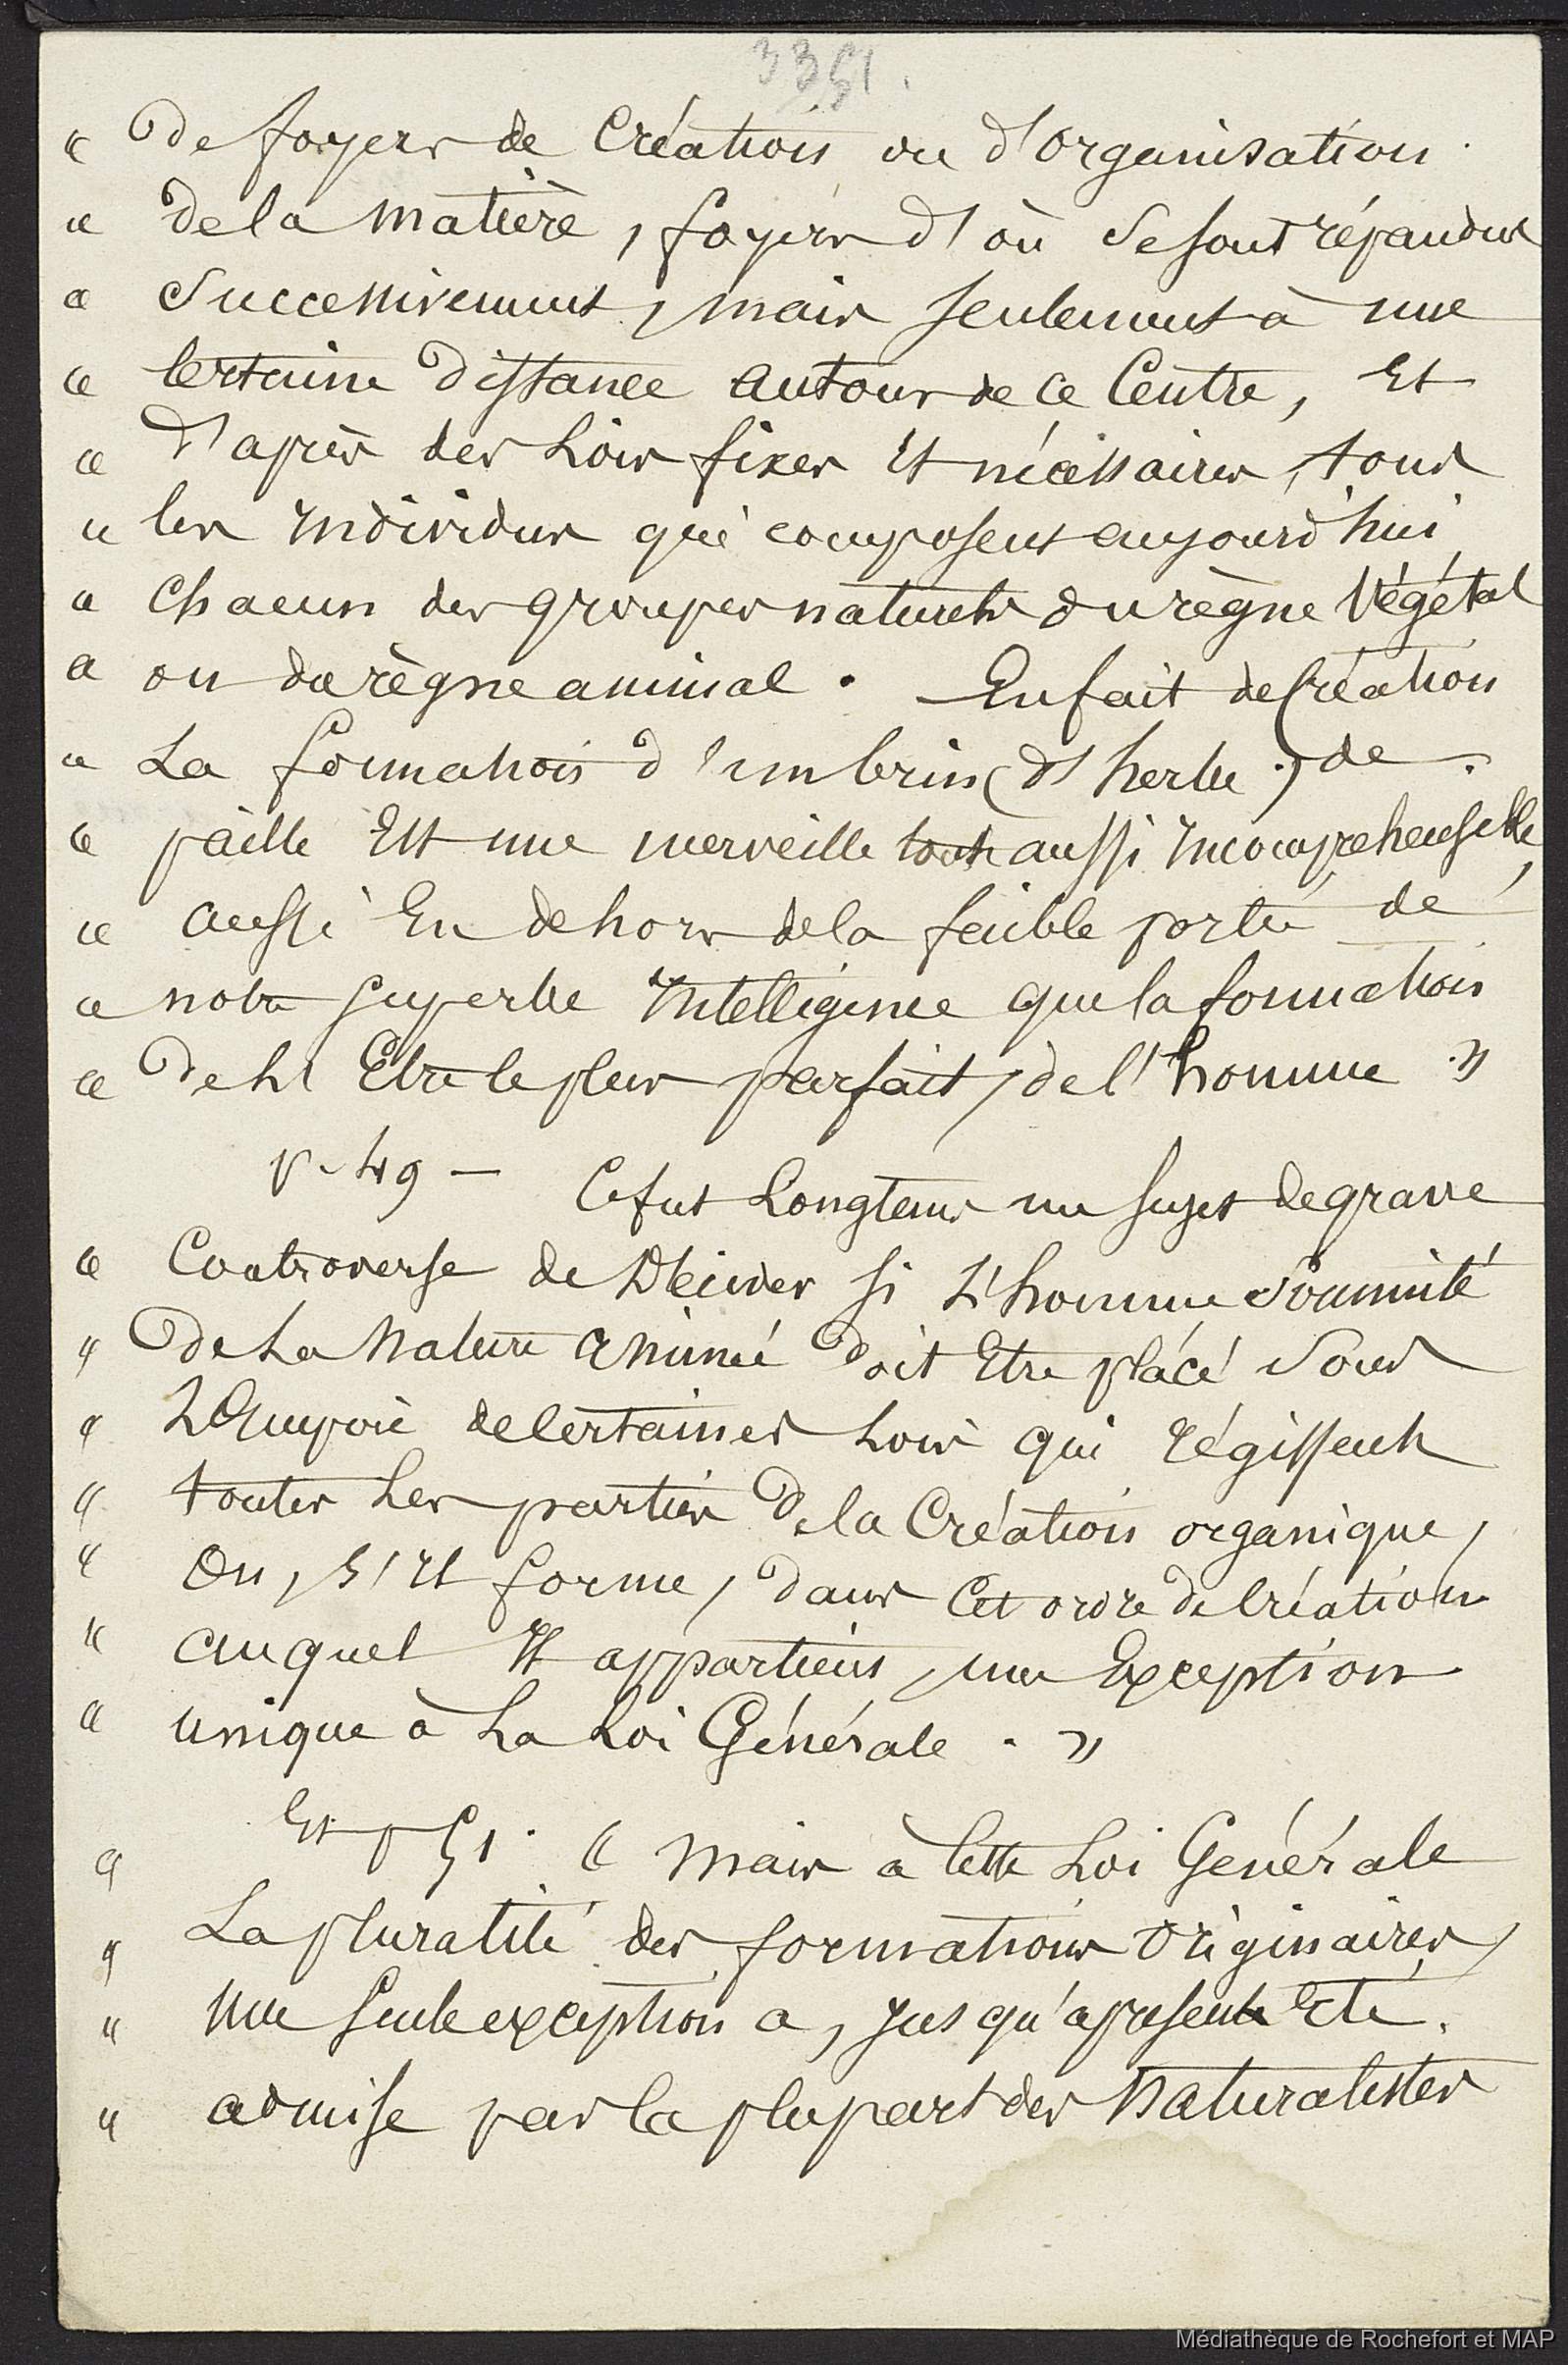 3351.
« De foyers de Création ou d'organisation
« de la matière, foyers d'où se sont répandus
« Successivement, mais seulement à une
« Certaine distance autour de ce Centre, Et
« d'après des Lois fixes Et nécessaires, tous
« les Individus qui composent aujourd'hui
« Chacun des groupes naturels du règne Végétal
« ou du règne animal. En fait de Création
« La formation d'un brin (d'herbe) de
« paille Est une merveille toute aussi Incomprehensible,
« aussi En dehors de la faible porteé de
« notre superbe Intelligence que la formation
« de L' Etre le plus parfait, de l'homme. »
p. 49 – Ce fut Longtems un sujet de grave
« Controverse de Décider si L'homme Sommité
« De La Nature animée doit Etre plácé Sous
« L'Empire de Certaines Lois qui régissent
« toutes Les parties de la Création organique,
« Ou, s'Il forme, dans Cet ordre de Création
« auquel Il appartient, une Exception
« unique à La Loi Générale. »
« Et p 51. « Mais à Cette Loi Générale
« La pluralité des formations Originaires,
« Une Seule exception a, jusqu'apresent Eté
« admise par la plupart des Naturalistes
Médiathèque de Rochefort et MAP